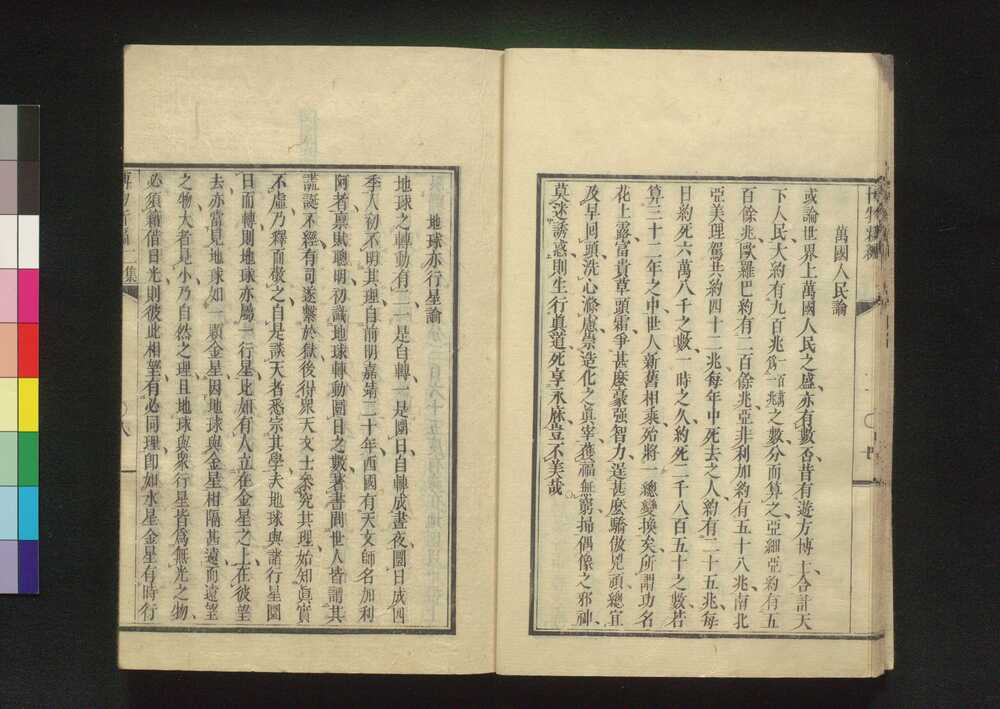 萬國人民論
或論世界上萬國人民之盛亦有數否昔有遊方博士合計天
下人民大約有九百兆一百萬為一兆之數分而算之亞細亞約有五
百餘兆歐羅巴約有二百餘兆亞非利加約有五十八兆南北
亞美理駕共約四十二兆每年中死去之人約有二十五兆每
日約死六萬八千之數一時之久約死二千八百五十之數若
算三十二年之中世人新舊相乘殆將一總變換矣所謂功名
花上露富貴草頭霜爭甚麼豪强智力逞甚麼驕傲兇頑總宜
及早回頭洗心滌慮崇造化之眞宰獲福無窮掃偶像之邪神
莫迷誘惑則生行眞道死享永庥豈不美哉
地球亦行星論
地球之轉動有二一是自轉一是圜日自轉成晝夜圜日成四
季人初不明其理自前明嘉靖二十年西國有天文師名加利
阿者禀賦聰明初識地球轉動圜日之數著書問世人皆謂其
謊誕不經有司遂繫於獄後得眾天文士叅究其理始知眞實
不虛乃釋而敬之自是談天者悉宗其學夫地球與諸行星圜
日而轉則地球亦屬一行星比如有人立在金星之上在彼望
去亦當見地球如一顆金星因地球與金星相隔甚遠而遠望
之物大者見小乃自然之理且地球與衆行星皆爲無光之物
必須藉借日光則彼此相望有必同理卽如水星金星有時行
二集
八